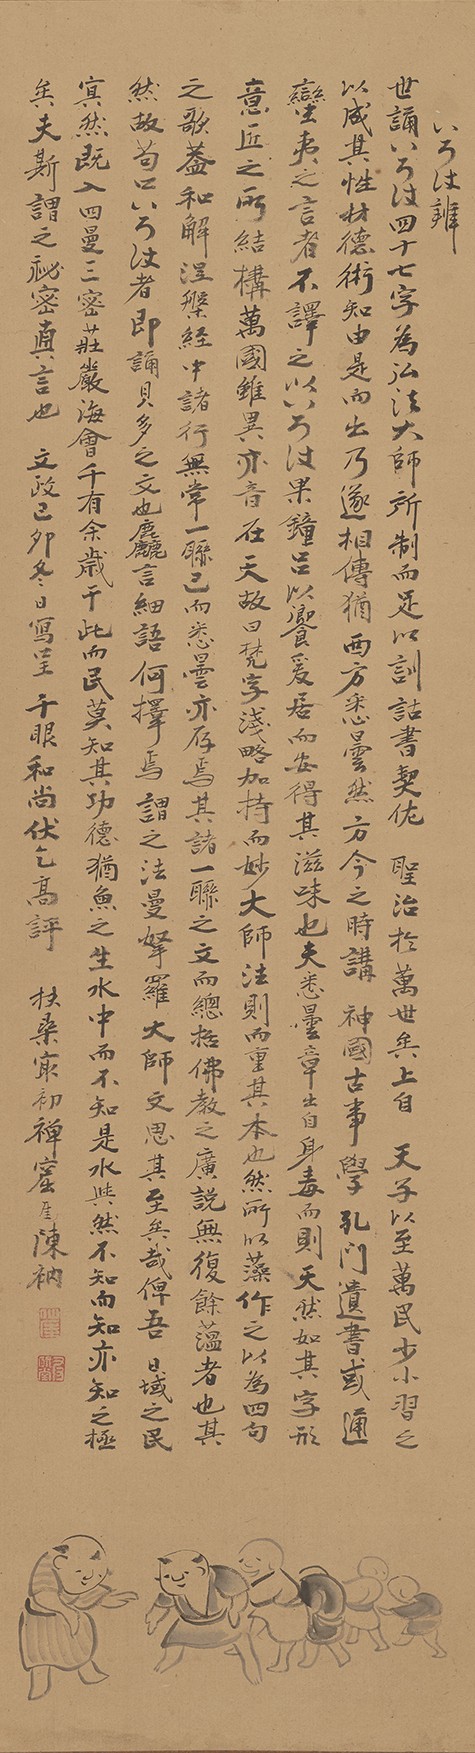 いろは辨
世誦いろは四十七字為弘法大師所制而足以訓詁書契佐 聖治於萬世矣上自 天子以至萬民少小習之
以成其性材德術知由是而出乃遂相傳猶西方悉曇然方今之時講 神國古事學孔門遺書或通
蠻夷之言者不譯之以いろは果鐘呂以饗爰居而安得其滋味也夫悉曇章出自身毒而則天然如其字形
意匠之所結構萬國雖異亦音在天故曰梵字淺略加持而妙大師法則而重其本也然所以藻作之以為四句
之歌蓋和解涅槃経中諸行無常一聯已而悉曇亦存焉其諸一聯之文而總括佛教之廣説無復餘薀者也其
然故苟口いろは者即誦貝多之文也麤言細語何擇焉謂之法曼拏羅大師文思其至矣哉俾吾日域之民
寘然既入四曼三密莊嚴海會千有余歳于此而民莫知其功德猶魚之生水中而不知是水與然不知而知亦知之極
矣夫斯謂之祕密真言也 文政己卯冬日寫呈 千眼和尚伏乞髙評 扶桑最初禅窟 陳衲